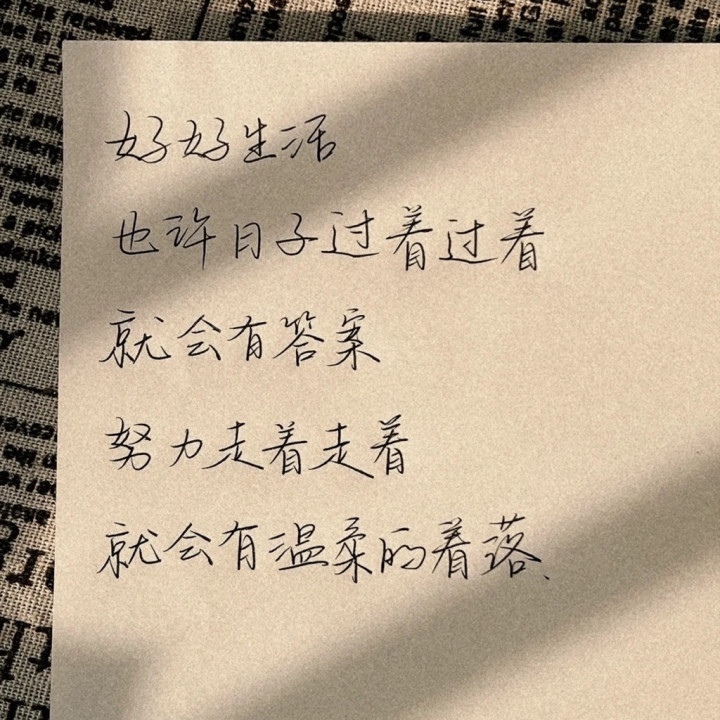 好好生活
也许日子过着过着
就会有答案
努力走着走着
就会有温柔的着落、